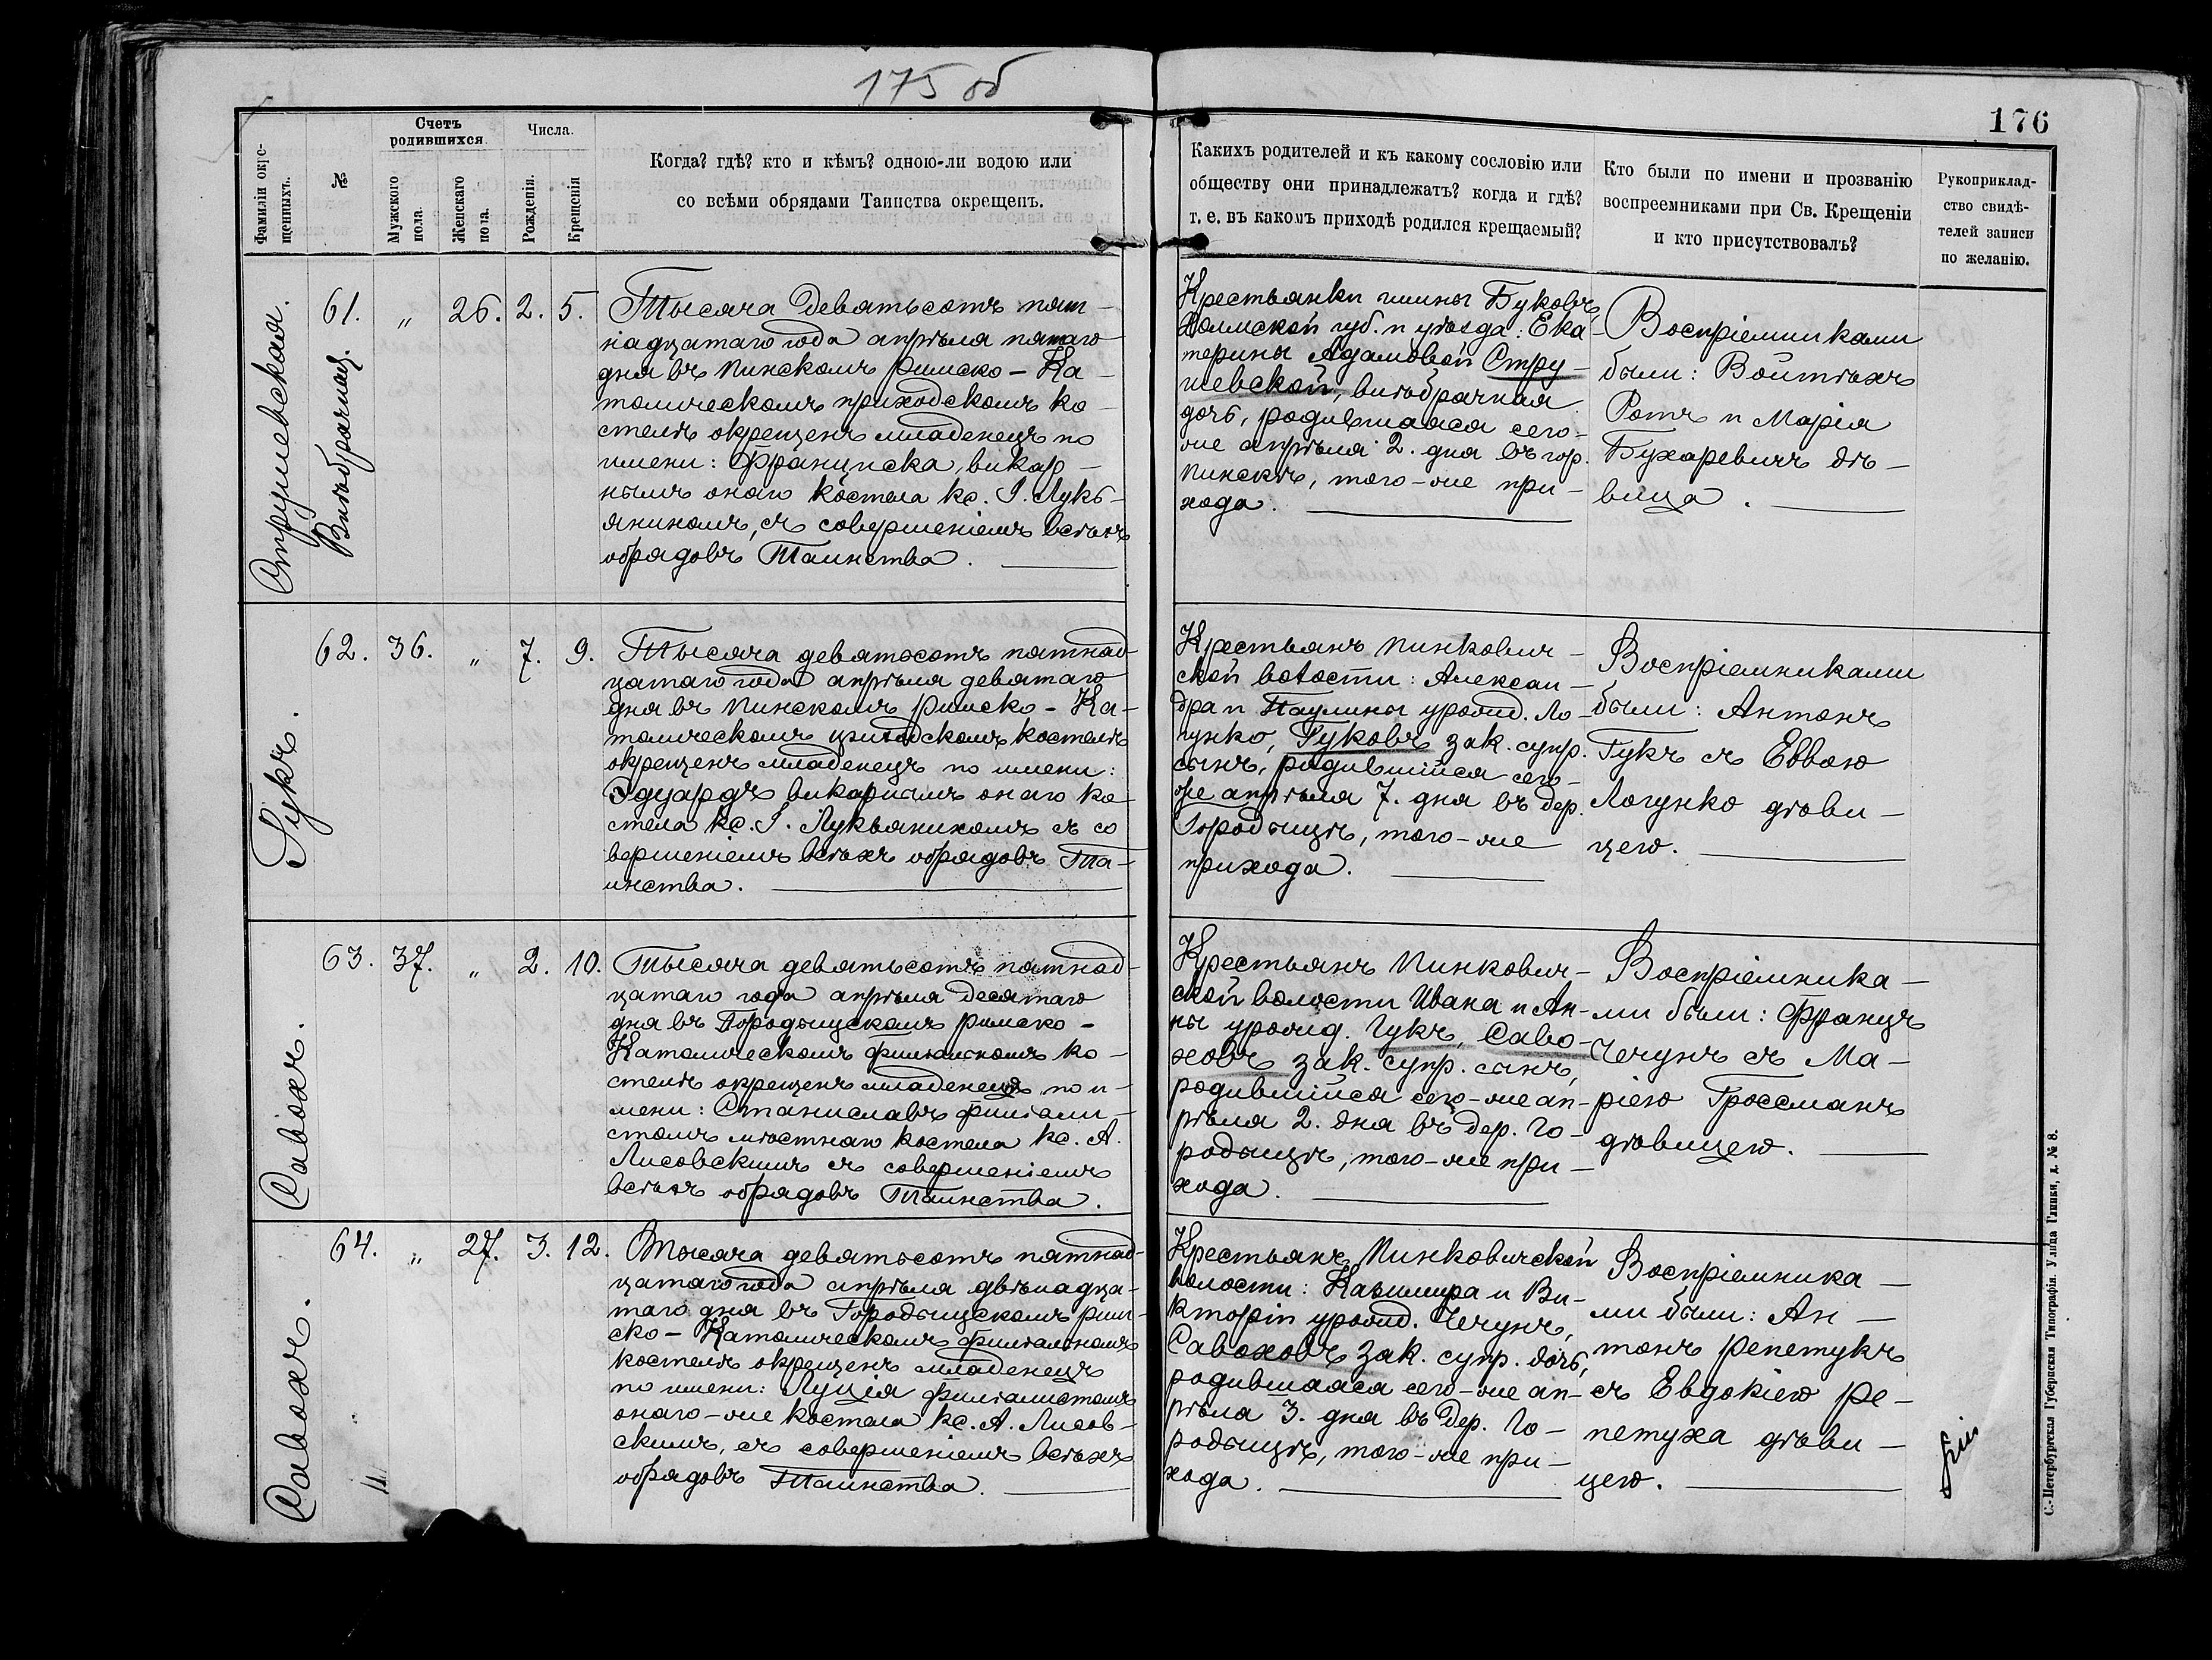 175 об
176
Фамиліи окре-
щенныхъ.
№
Счетъ
родившихся.
Мужского
пола.
Женскаго
пола.
Числа.
Рожденія.
Крещенія
Когда? гдѣ? кто и кѣмъ? одною-ли водою или
со всѣми обрядами Таинства окрещенъ.
Какихъ родителей и къ какому сословію или
обществу они принадлежатъ? когда и гдѣ?
т. е. въ какомъ приходѣ родился крещаемый?
Кто были по имени и прозванію
воспреемниками при Св. Крещеніи
и кто присутствовалъ?
Рукоприклад-
ство свидѣ-
телей записи
по желанію.
Струшевская.
61.
Внѣбрачная.
„ 26. 2. 5.
Тысяча девятьсотъ пят-
надцатаго года апрѣля пятаго
дня въ Пинскомъ Римско-Ка-
толическомъ приходскомъ ко-
стелѣ окрещенъ младенецъ по
имени: Франциска, викар-
нымъ онаго костела кс. І. Лукь-
яникомъ, съ совершеніемъ всѣхъ
обрядовъ Таинства.
Крестьянки гмины Буковъ,
Холмской губ. и уѣзда: Ека-
терины Адамовой Стру-
шевской, внѣбрачная
дочь, родившаяся сего-
же апрѣля 2. дня въ гор.
Пинскѣ, того-же при-
хода.
Воспріемниками
были: Войтѣхъ
Ротъ и Марія
Бухаревичъ дѣ-
вица.
Гукъ.
62. 36. „ 7. 9.
Тысяча девятьсотъ пятнад-
цатаго года апрѣля девятаго
дня въ Пинскомъ Римско-Ка-
толическомъ приходскомъ костелѣ
окрещенъ младенецъ по имени:
Эдуардъ викарнымъ онаго ко-
стела кс. І. Лукьяникомъ съ со
вершеніемъ всѣхъ обрядовъ Та-
инства.
Крестьянъ Пинкович-
ской волости: Алексан-
дра и Паулины урожд. Ло-
гунко, Гуковъ зак. супр.
сынъ, родившійся сего-
же апрѣля 7. дня въ дер.
Городыщѣ, того-же
прихода.
Воспріемниками
были: Антонъ
Гукъ съ Еввою
Логунко дѣви-
цею.
Савохъ.
63. 37. „ 2. 10.
Тысяча девятьсотъ пятнад-
цатаго года апрѣля десятаго
дня въ Городыщскомъ Римско-
Католическомъ филіальномъ ко-
стелѣ окрещенъ младенецъ по и-
мени: Станиславъ филіали-
стомъ мѣстнаго костела кс. А.
Лисовскимъ съ совершеніемъ
всѣхъ обрядовъ Таинства.
Крестьянъ Пинкович-
ской волости Ивана и Ан-
ны урожд. Гукъ, Саво-
ховъ зак. супр. сынъ,
родившійся сего-же ап-
рѣля 2. дня въ дер. Го-
родыщѣ, того-же при-
хода.
Воспріемника-
ми были: Францъ
Чечунъ съ Ма-
ріею Гроссманъ
дѣвицею.
Савохъ.
64. „ 27. 3. 12.
Тысяча девятьсотъ пятнад-
цатаго года апрѣля двѣнадца-
таго дня въ Городыщскомъ Рим-
ско-Католическомъ филіальномъ
костелѣ окрещенъ младенецъ
по имени: Луція филіалистомъ
онаго-же костела кс. А. Лисов-
скимъ, съ совершеніемъ всѣхъ
обрядовъ Таинства.
Крестьянъ Пинковичской
волости: Казимира и Ви-
кторіи урожд. Чечунъ,
Савоховъ зак. супр. дочь,
родившаяся сего-же ап-
рѣля 3. дня въ дер. Го-
родыщѣ, того-же при-
хода.
Воспріемника-
ми были: Ан-
тонъ Репетухъ
съ Евдокіею Ре-
петуха дѣви-
цею.
С.-Петербургская Губернская Типографія. Улица Глинки, д. № 8.